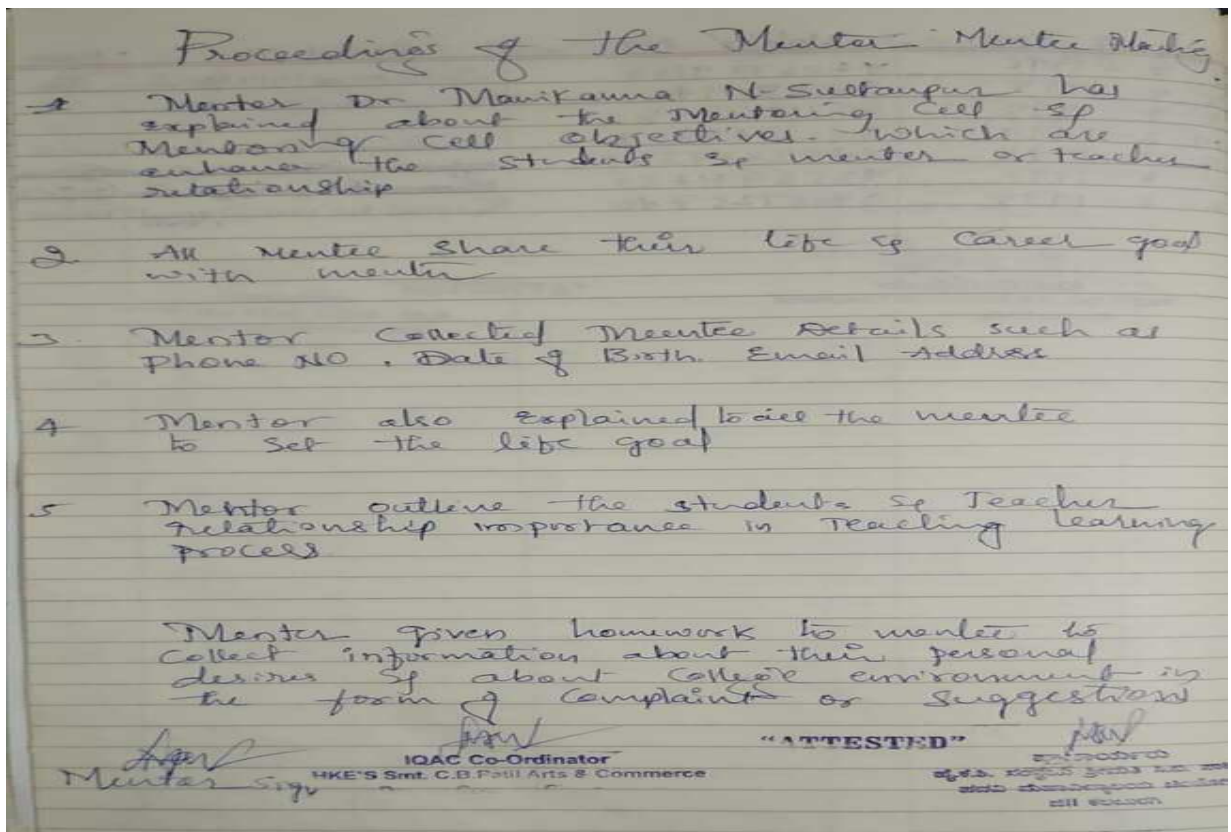 Proceedings of the Mentor Mentee Meeting
1 Mentor, Dr Manikamma N. Sultanpur has
explained about the Mentoring Cell &
Mentoring Cell objectives. which are
enhance the students & mentor or teacher
relationship
2 All Mentee Share their life & Career goal
with mentor
3. Mentor Collected Meentee Details such as
Phone NO, Date of Birth. Email Address
4 Mentor also explained to all the mentee
to set the life goal
5 Mentor outline the students & Teacher
relationship importance in Teaching Learning
process
Mentor given homework to mentee to
Collect information about their personal
desires & about College environment in
the form of Complaints or Suggestions
Mentor Sign
IQAC Co-Ordinator
HKE'S Smt. C.B.Patil Arts & Commerce
"ATTESTED"